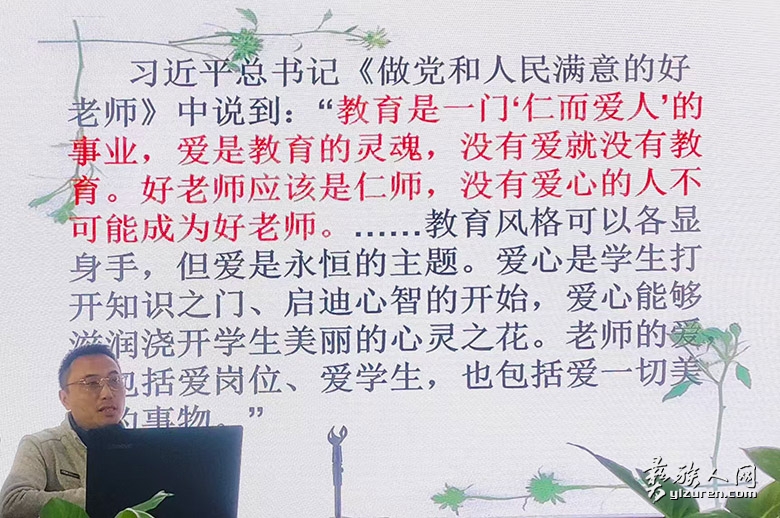 习近平总书记《做党和人民满意的好
老师》中说到：“教育是一门‘仁而爱人’的
事业，爱是教育的灵魂，没有爱就没有教
育。好老师应该是仁师，没有爱心的人不
可能成为好老师。……教育风格可以各显
身手，但爱是永恒的主题。爱心是学生打
开知识之门、启迪心智的开始，爱心能够
滋润浇开学生美丽的心灵之花。老师的爱，
包括爱岗位、爱学生，也包括爱一切美
的事物。”
彝族人网
yizuren.com